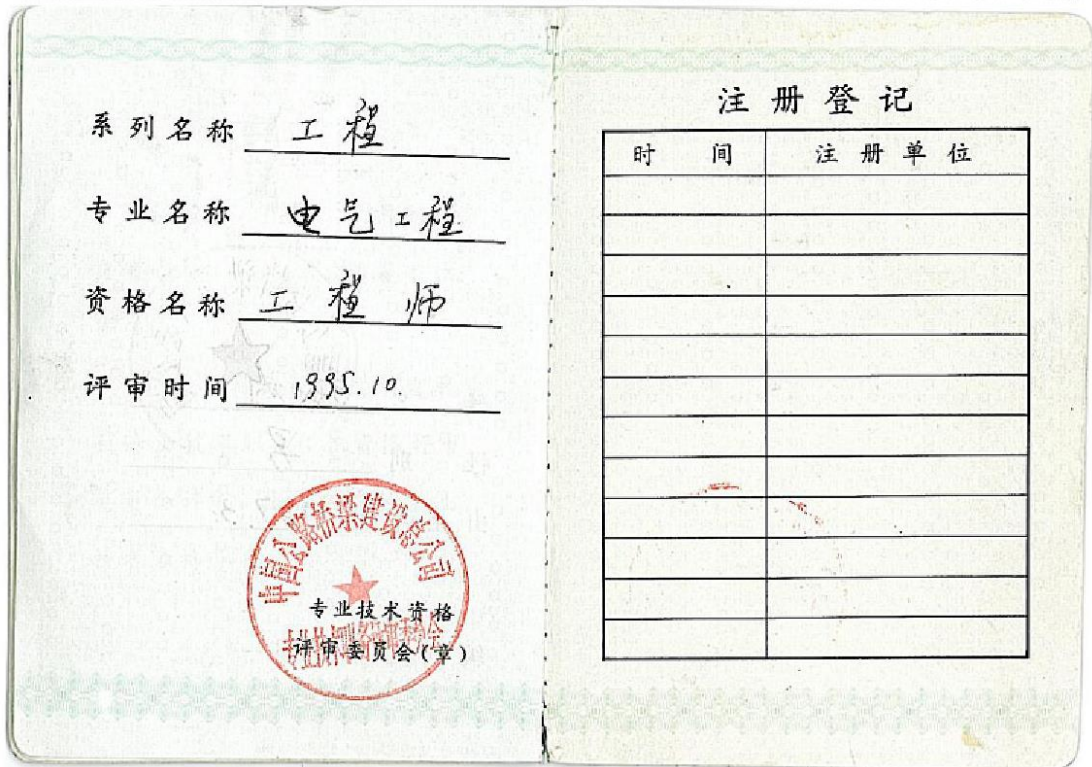 系列名称 工程
专业名称 电气工程
资格名称 工程师
评审时间 1995.10.
中国公路桥梁建设总公司
专业技术资格
评审委员会(章)
注册登记
时 间 注册单位